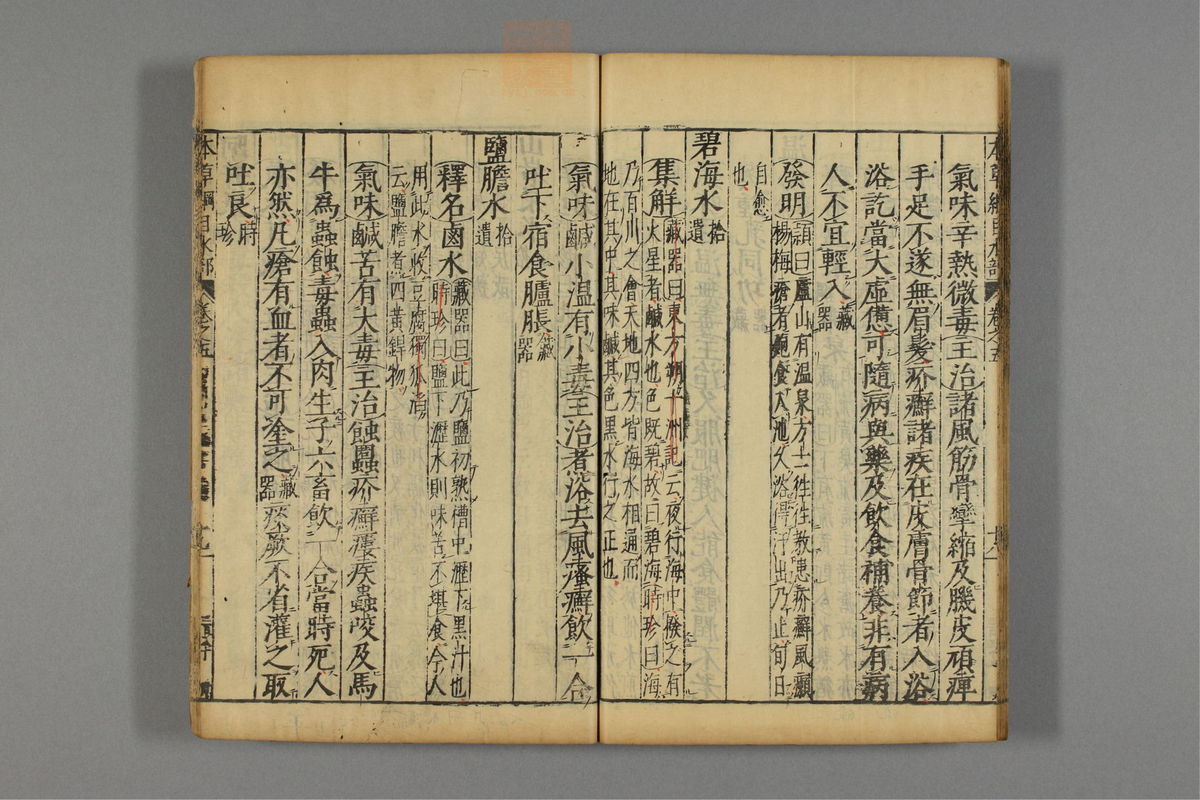 氣味辛熱微毒主治諸風筋骨攣縮及肌皮頑痺
手足不遂無眉髮疥癬諸疾在皮膚骨節者入浴
浴訖當大虛憊可隨病與藥及飲食補養非有病
人不宜輕入藏器
發明穎曰廬山有溫泉方士徃徃教患疥癬風癩
楊梅瘡者飽食入池久浴得汗出乃止旬日
自愈
也
碧海水拾遺
集解藏器曰東方朔十洲記云夜行海中撥之有
火星者鹹水也色既碧故曰碧海時珍曰海
乃百川之會天地四方皆海水相通而
地在其中其味鹹其色黑水行之正也
氣味鹹小溫有小毒主治煮浴去風瘙癬飲一合
吐下宿食臚脹藏器
鹽膽水拾遺
釋名鹵水藏器曰此乃鹽初熟槽中瀝下黑汁也
時珍曰鹽下瀝水則味苦不堪食今人
用此水收豆腐獨孤滔
云鹽膽煮四黃銲物
氣味鹹苦有大毒主治蝕䘌疥癬瘻疾蟲咬及馬
牛爲蟲蝕毒蟲入肉生子六畜飲一合當時死人
亦然凡瘡有血者不可塗之藏器痰厥不省灌之取
吐良時珍
本草綱目水部
卷之五